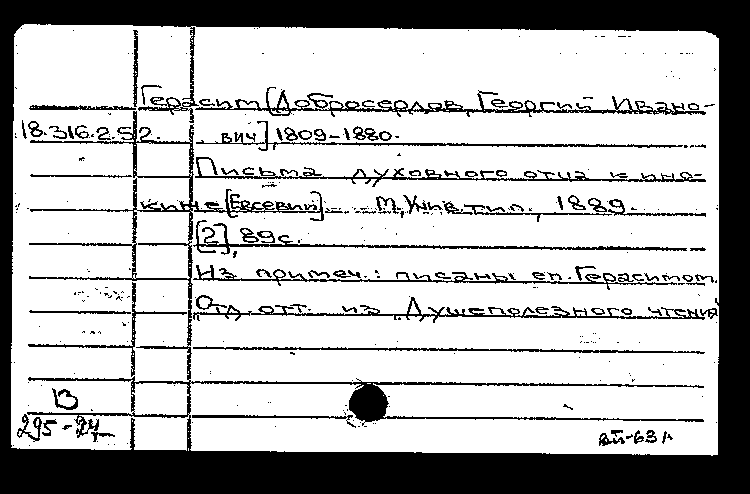 Герасим [Добросердов, Георгий Ивано-
18.316.2.52. вич], 1809-1880.
Письма духовного отца к ино-
кине [Евсевии]. М., Унив. тип., 1889.
[2], 89с.
Из примеч.: писаны еп. Герасимом.
Отд. отт. из „Душеполезного чтения"
В
295-
вй-63